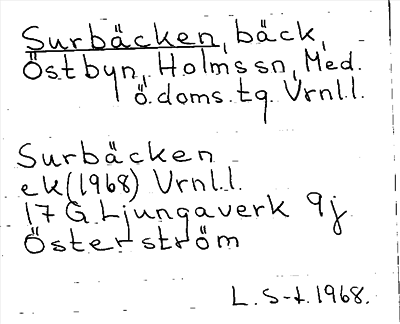 Surbäcken, bäck,
Östbyn, Holms sn, Med.
ö. doms. tg. Vrnl.l.
Surbäcken
ek (1968) Vrnl.l.
17 G Ljungaverk 9j
Österström
L. S-t. 1968.